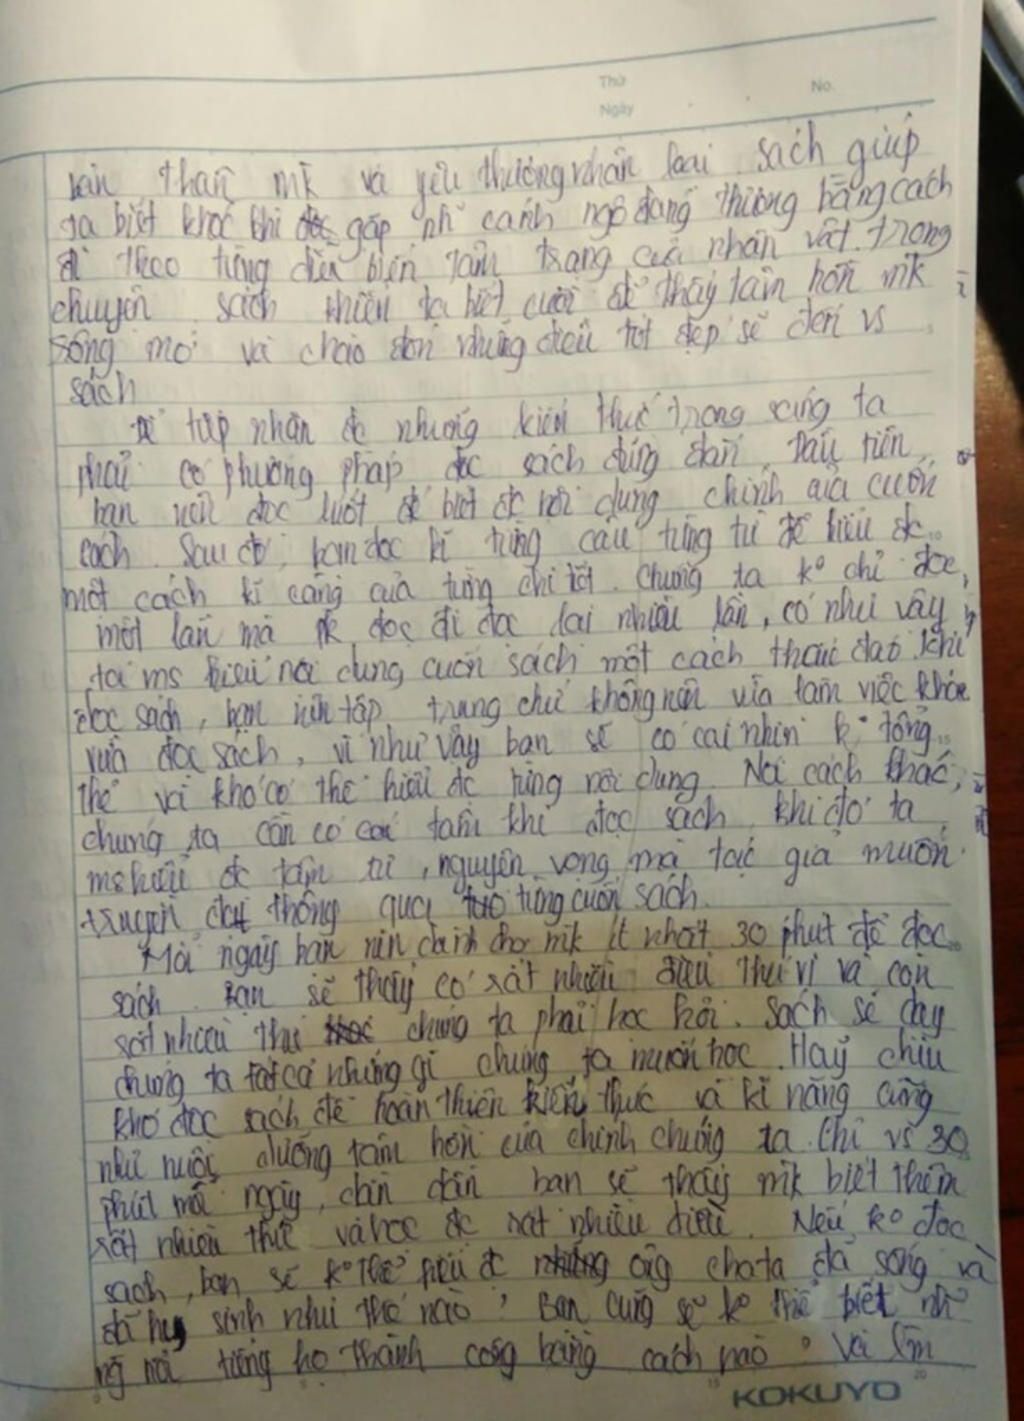 Thứ No.
Ngày
bản thân mk và yêu thương nhân loại. Sách giúp
ta biết khóc khi gặp nh~ cảnh ngộ đáng thương bằng cách
đi theo từng diễn biến tâm trạng của nhân vật trong
chuyện. sách khiến ta biết cười để thấy tâm hồn mk
sống mơ và chào đón những điều tốt đẹp sẽ đến vs
sách
Để tiếp nhận đc những kiến thức trong ta
phải có phương pháp đọc sách đúng đắn. Đầu tiên,
bạn nên đọc lướt để biết đc nội dung chính của cuốn
sách. Sau đó, bạn đọc kĩ từng câu từng từ để hiểu đc
một cách kĩ càng của từng chi tiết. Chúng ta ko chỉ đọc
một lần mà đọc đi đọc lại nhiều lần, có như vậy
ta ms hiểu nội dung cuốn sách một cách thấu đáo. Khi
đọc sách, bạn nên tập trung chứ không nên vừa làm việc khác
vừa đọc sách, vì như vậy bạn sẽ có cái nhìn ko tổng
thể và khó có thể hiểu đc từng nội dung. Nói cách khác,
chúng ta cần có cái tâm khi đọc sách, khi đó ta
ms hiểu đc tâm tư, nguyện vọng mà tác giả muốn
truyền đạt thông qua từng cuốn sách.
Mỗi ngày bạn nên dành cho mk ít nhất 30 phút để đọc
sách. Bạn sẽ thấy có rất nhiều điều thú vị và còn
rất nhiều thứ chúng ta phải học hỏi. Sách sẽ dạy
chúng ta tất cả những gì chúng ta muốn học. Hãy chịu
khó đọc sách để hoàn thiện kiến thức và kĩ năng cũng
như nuôi dưỡng tâm hồn của chính chúng ta. Chỉ vs 30
phút mỗi ngày, dần dần bạn sẽ thấy mk biết thêm
rất nhiều thứ và học đc rất nhiều điều. Nếu ko đọc
sách, bạn sẽ ko thể hiểu đc ông cha ta đã sống và
đã hy sinh như thế nào? Bạn cũng sẽ ko thể biết nh~
ng nổi tiếng họ thành công bằng cách nào? Và
KOKUYO